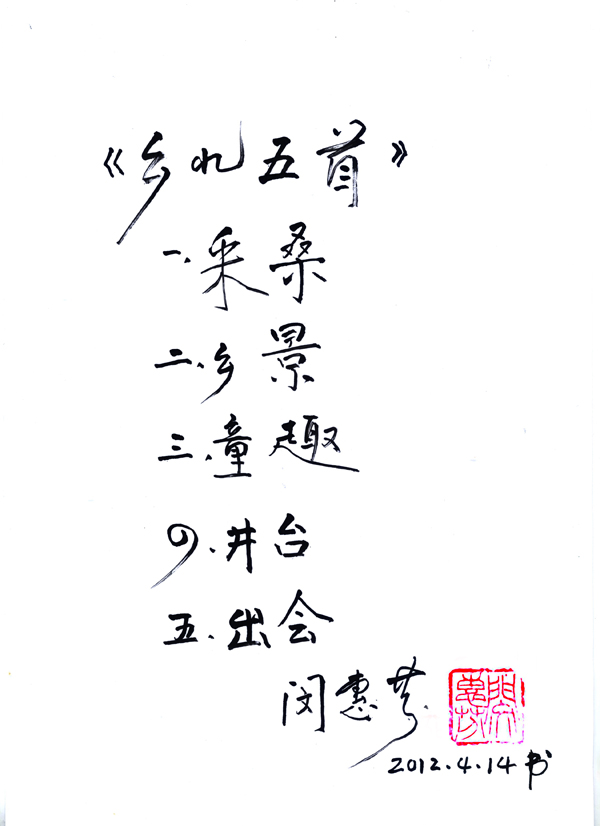 《乡札五首》
一、采桑
二、乡景
三、童趣
四、井台
五、出会
闵惠芬
闵惠芬
2012.4.14书